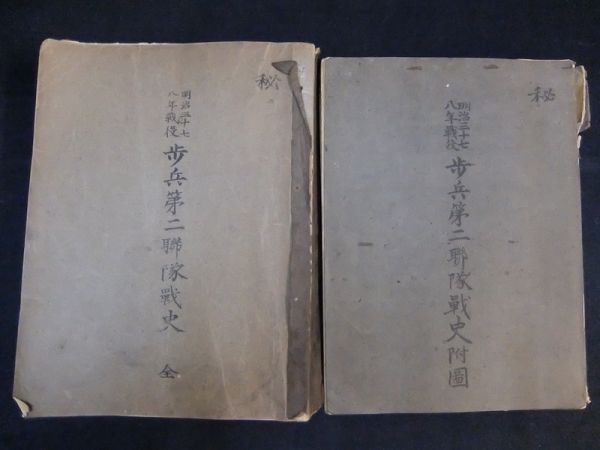 秘
明治三十七
八年戦役
歩兵第二聯隊戰史
全
秘
明治三十七
八年戦役
歩兵第二聯隊戰史附圖